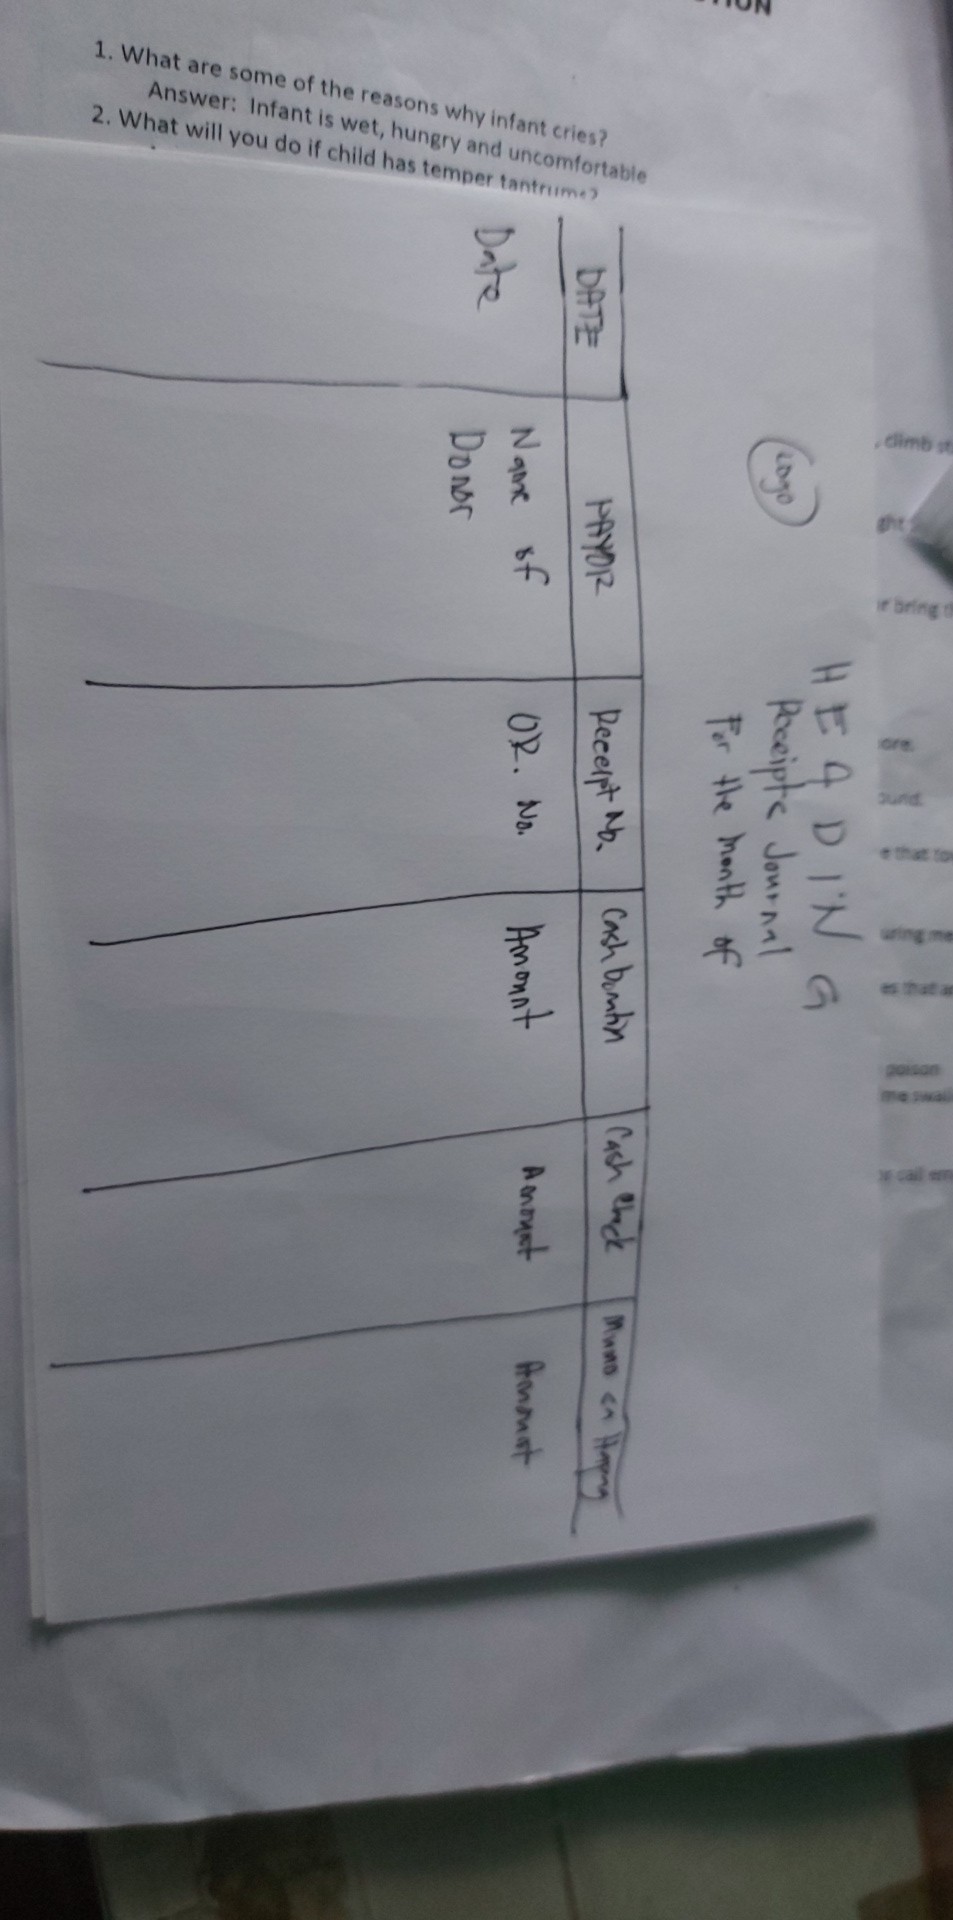 1. What are some of the reasons why infant cries?
Answer: Infant is wet, hungry and uncomfortable
2. What will you do if child has temper tantrums?
Logo
HEADING
Receipts Journal
For the month of
DATE
PAYOR
Receipt No.
Cash
Cash Check
Date
Name of
Donor
OR. No.
Amount
Amount
Amount
climb
ght
bring
ore.
ound.
that
uring me
es that
poison
me swal
call